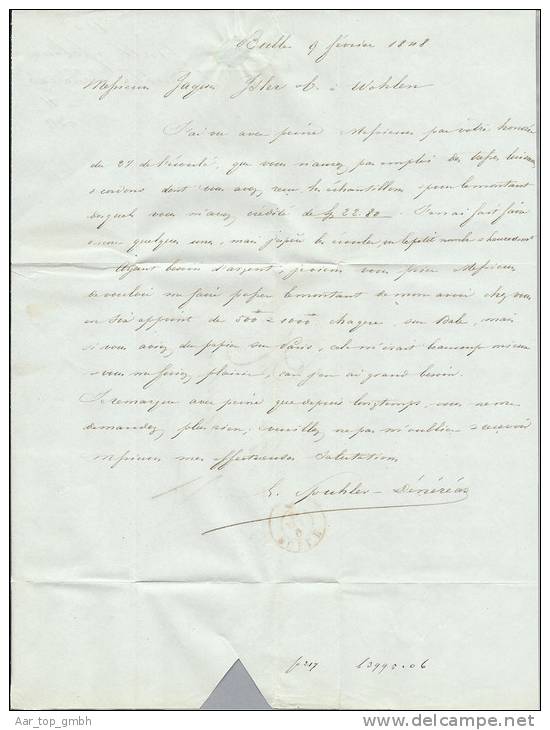 Bulle 9 février 1848
Messieurs Jaques Isler & C. à Wohlen
J'ai vu avec peine Messieurs par votre honorée
du 27 de l'écoulé, que vous n'aurez pas emploi des tresses
& cordons dont vous avez reçu les échantillons pour le montant
duquel vous m'avez crédité de 22.80. J'en ai fait faire
encore quelques unes, mais j'espère les écouler
Ayant besoin d'argent, je viens vous prier Messieurs
de vouloir me faire passer le montant de mon avoir chez vous
en appoint de 500 à 1000 chaque, sur Bale, mais
si vous aviez du papier sur Paris, cela m'irait beaucoup mieux
& vous me feriez plaisir, car j'en ai grand besoin.
Je remarque avec peine que depuis longtemps vous ne me
demandez plus rien, veuillez ne pas m'oublier & recevoir
Messieurs mes affectueuses salutations
Dénéréaz
BULLE
13990.06
Aar_top_gmbh
DELCAMPE.NET